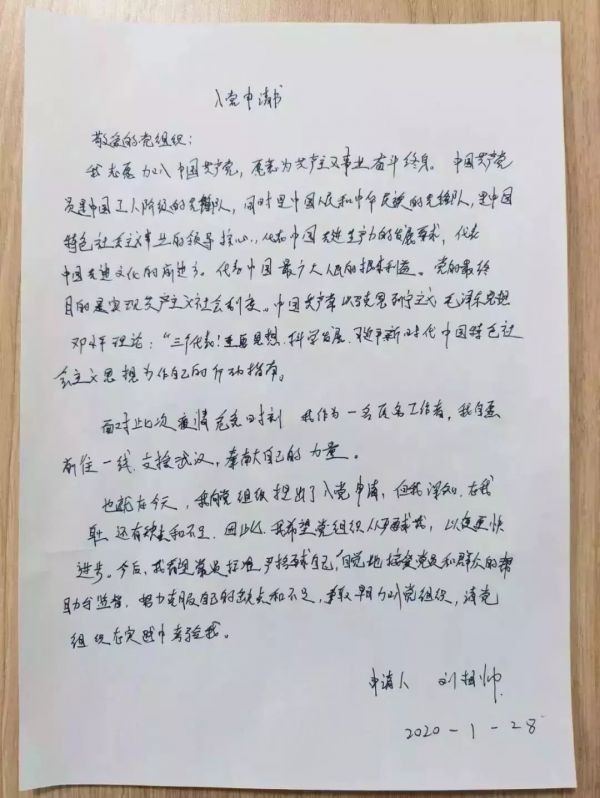 入党申请书
敬爱的党组织：
我志愿加入中国共产党，愿意为共产主义事业奋斗终身。中国共产党
员是中国工人阶级的先锋队，同时是中国人民和中华民族的先锋队，是中国
特色社会主义事业的领导核心，代表中国先进生产力的发展要求，代表
中国先进文化的前进方。代表中国最广大人民的根本利益。党的最终
目的是实现共产主义社会制度。中国共产党以马克思列宁主义 毛泽东思想
邓小平理论："三个代表"重要思想.科学发展.习近平新时代中国特色社
会主义思想为作自己的行动指南。
面对此次疫情危急时刻 我作为一名医务工作者，我自愿
前往一线.支援武汉，奉献自己的力量。
也就在今天，我向党组织提出了入党申请，但我深知.在我
身上还有缺点和不足，因此.我希望党组织从严求我，以便更快
进步。今后，我希望党员标准严格要求自己，自觉地接受党员和群众的帮
助与监督，努力克服自己的缺点和不足，争取早日加入党组织，请党
组织在实践中考验我。
申请人 刘
2020-1-28